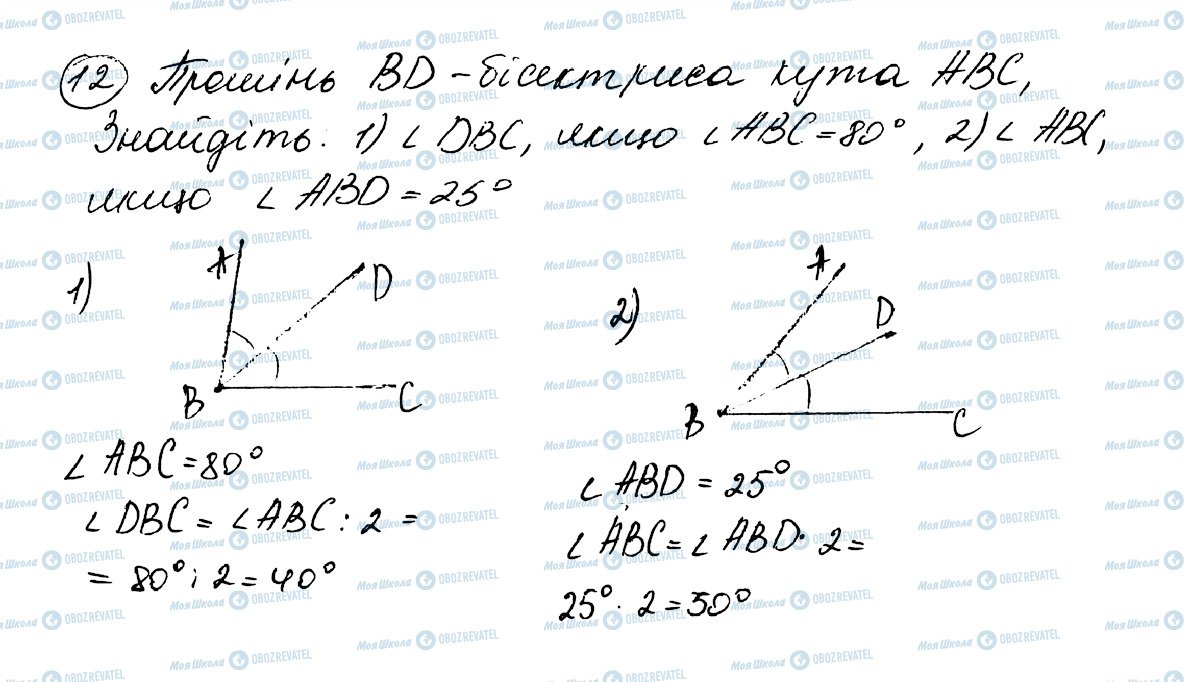 12 Промінь BD – бісектриса кута ABC,
Знайдіть: 1) ∠ DBC, якщо ∠ ABC = 80°, 2) ∠ ABC,
якщо ∠ ABD = 25°
1)
A
D
B
C
∠ ABC = 80°
∠ DBC = ∠ ABC : 2 =
= 80° : 2 = 40°
2)
A
D
B
C
∠ ABD = 25°
∠ ABC = ∠ ABD · 2 =
25° · 2 = 50°
Моя Школа OBOZREVATEL